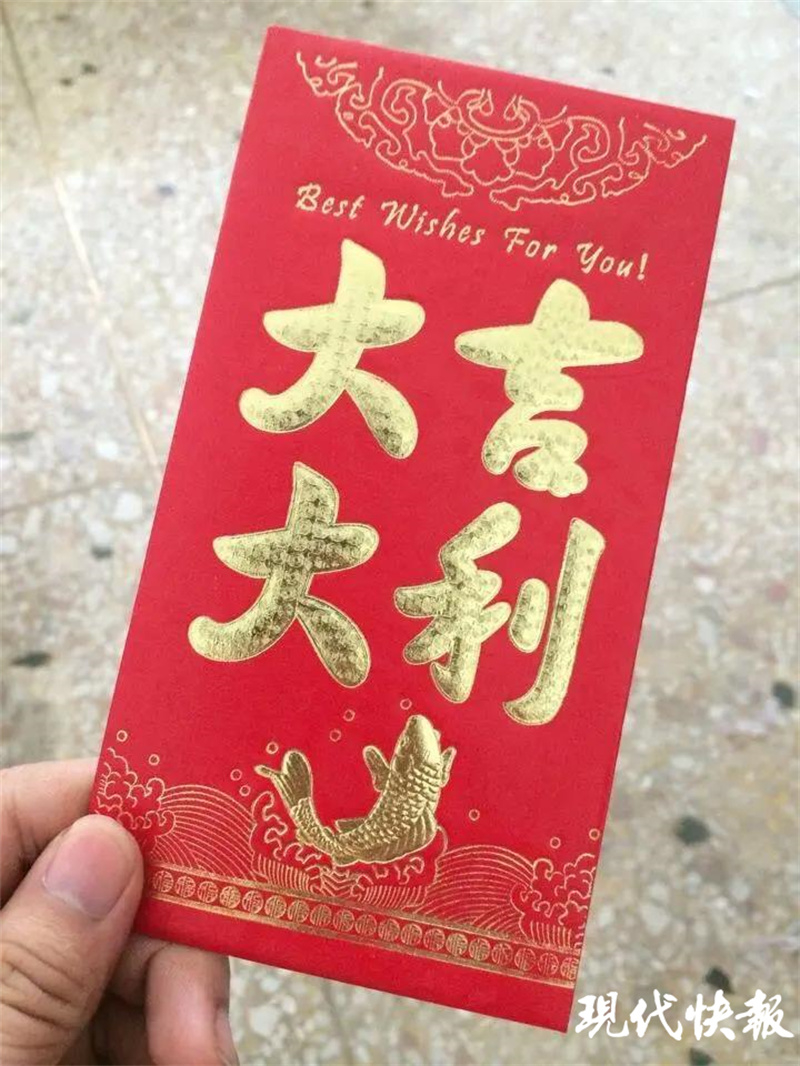 Best Wishes For You!
大吉
大利
现代快報